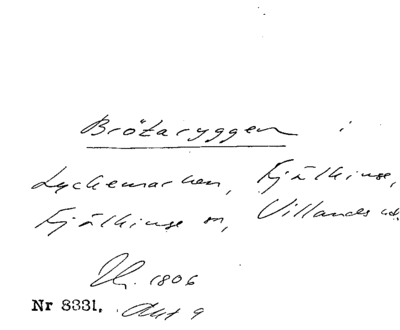 Brötaryggen i
Lyckemarken, Fjälkinge,
Fjälkinge sn, Villands hd.
Lh. 1806
Nr 8331. Akt 9